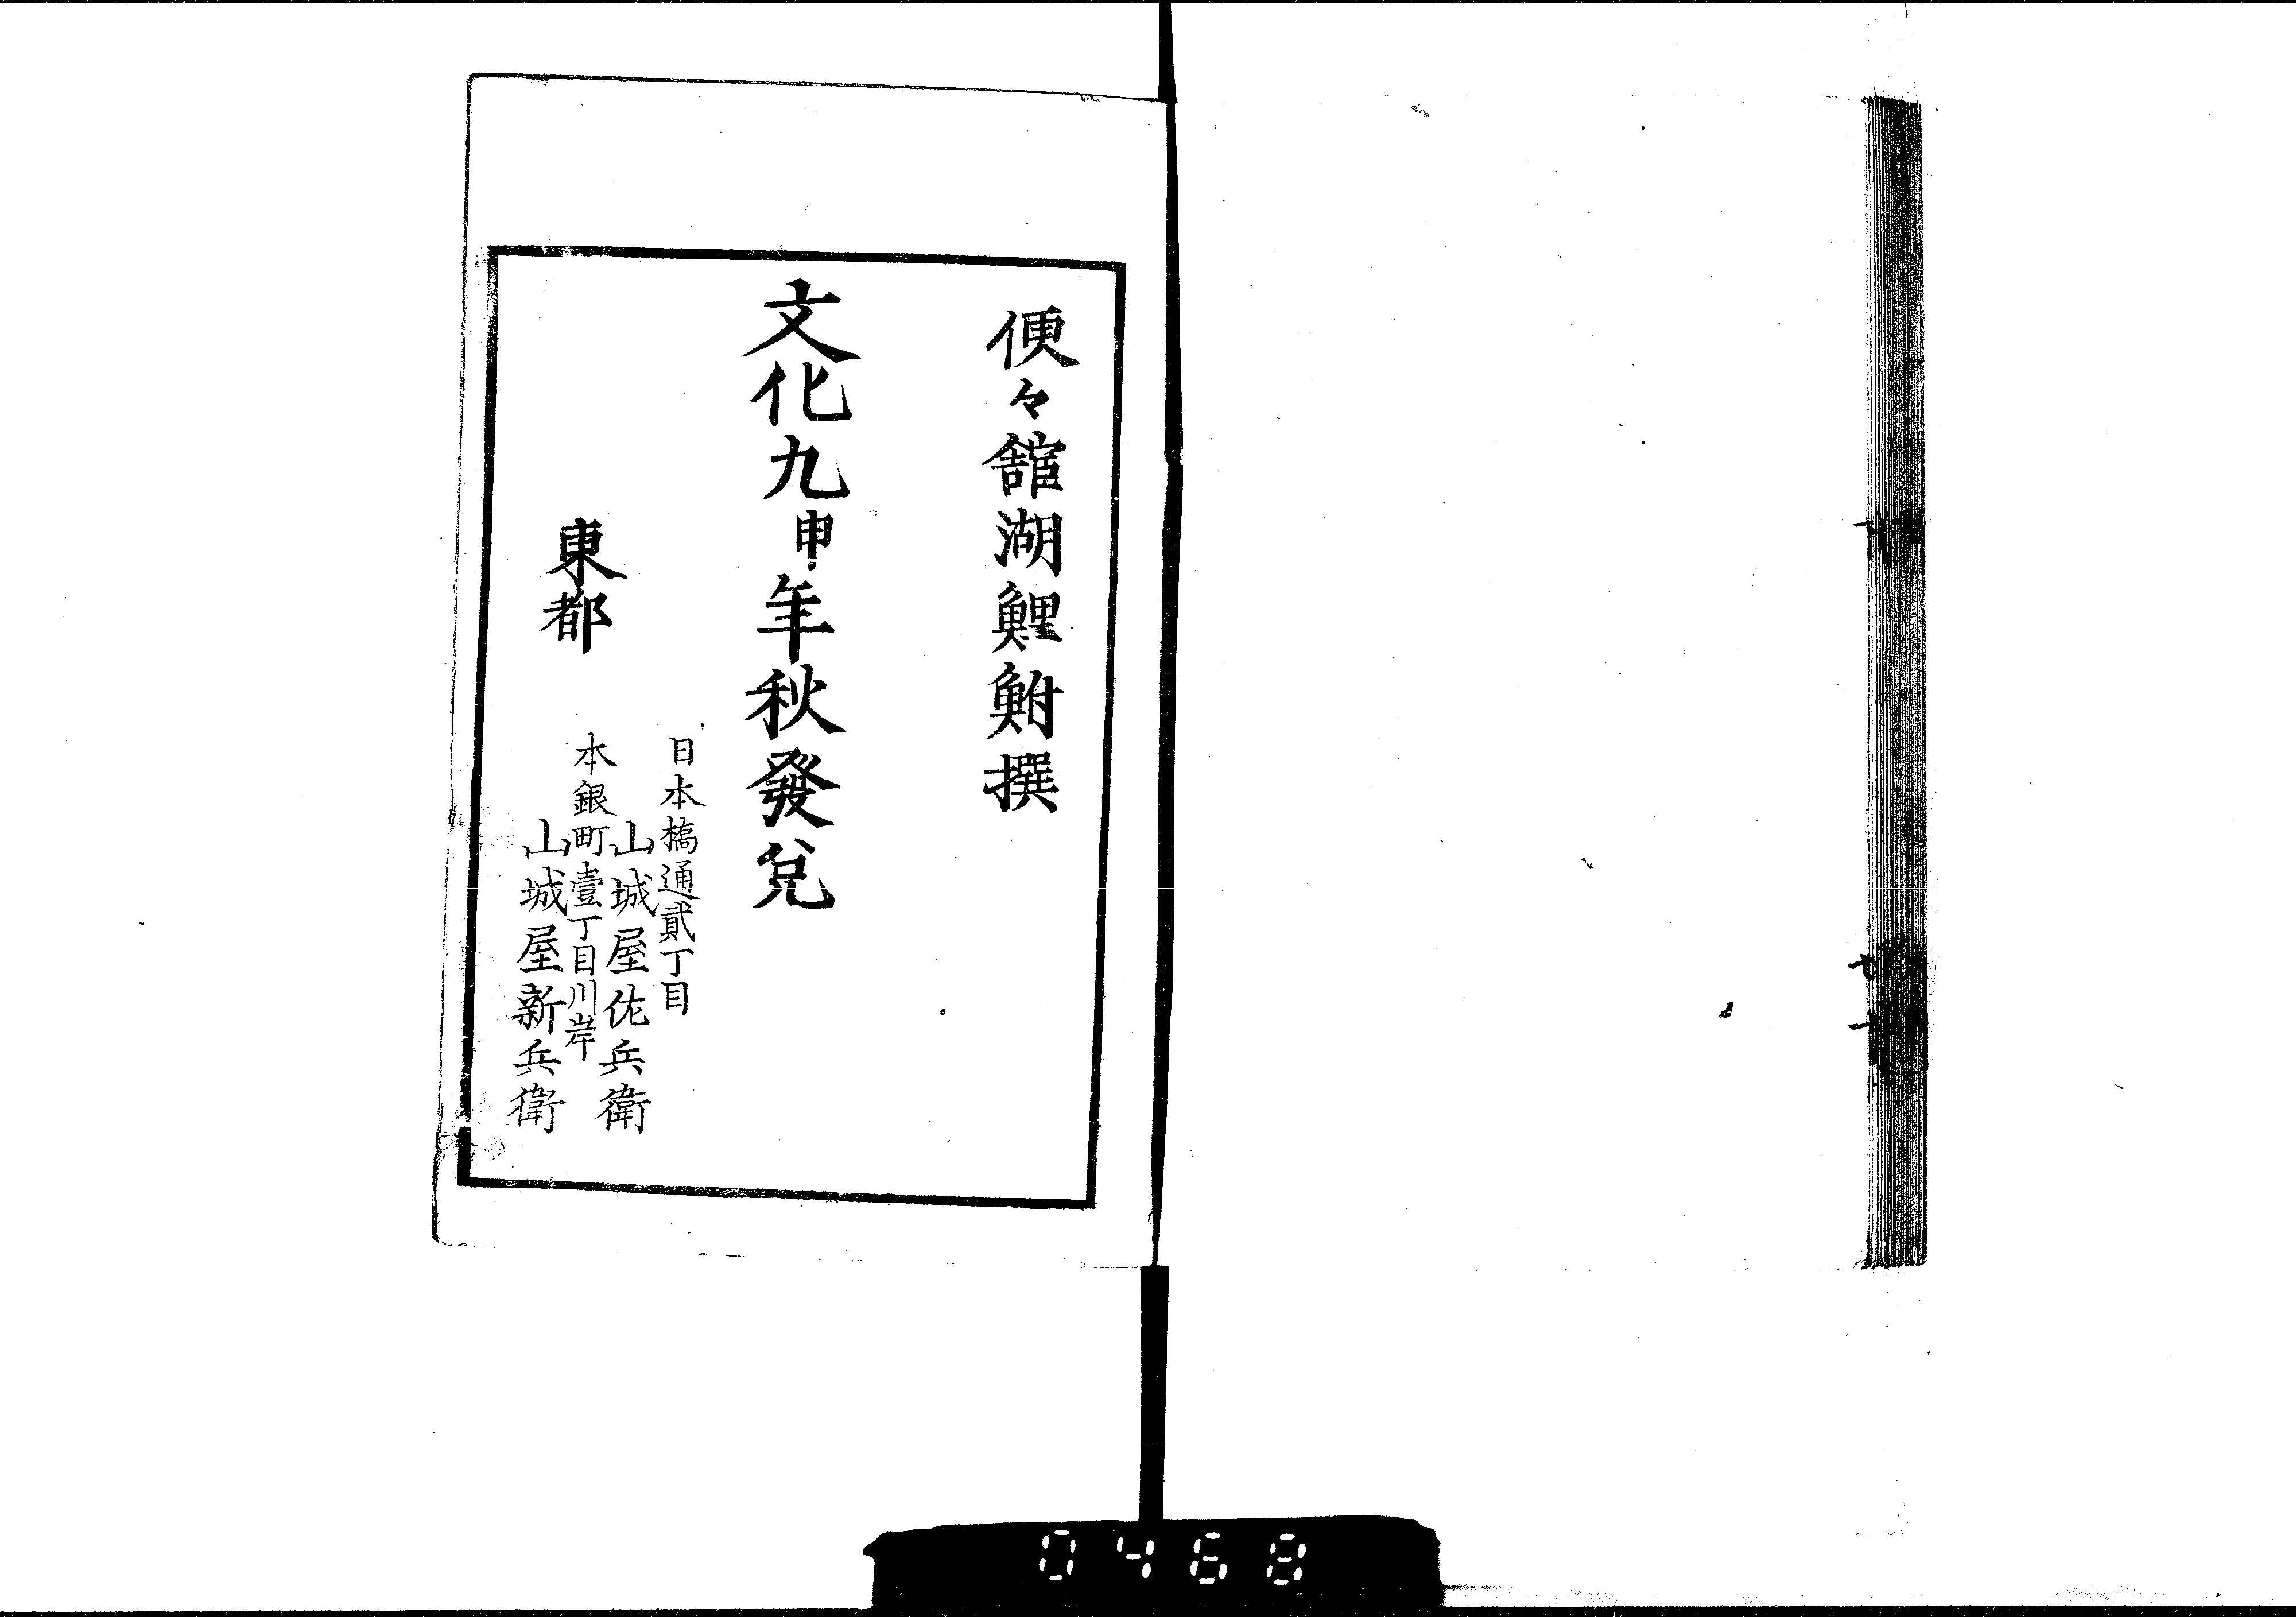 便々舘湖鯉鮒撰
文化九申年秋發兌
東都
日本橋通貳丁目
山城屋佐兵衛
本銀町壹丁目川岸
山城屋新兵衛
0468